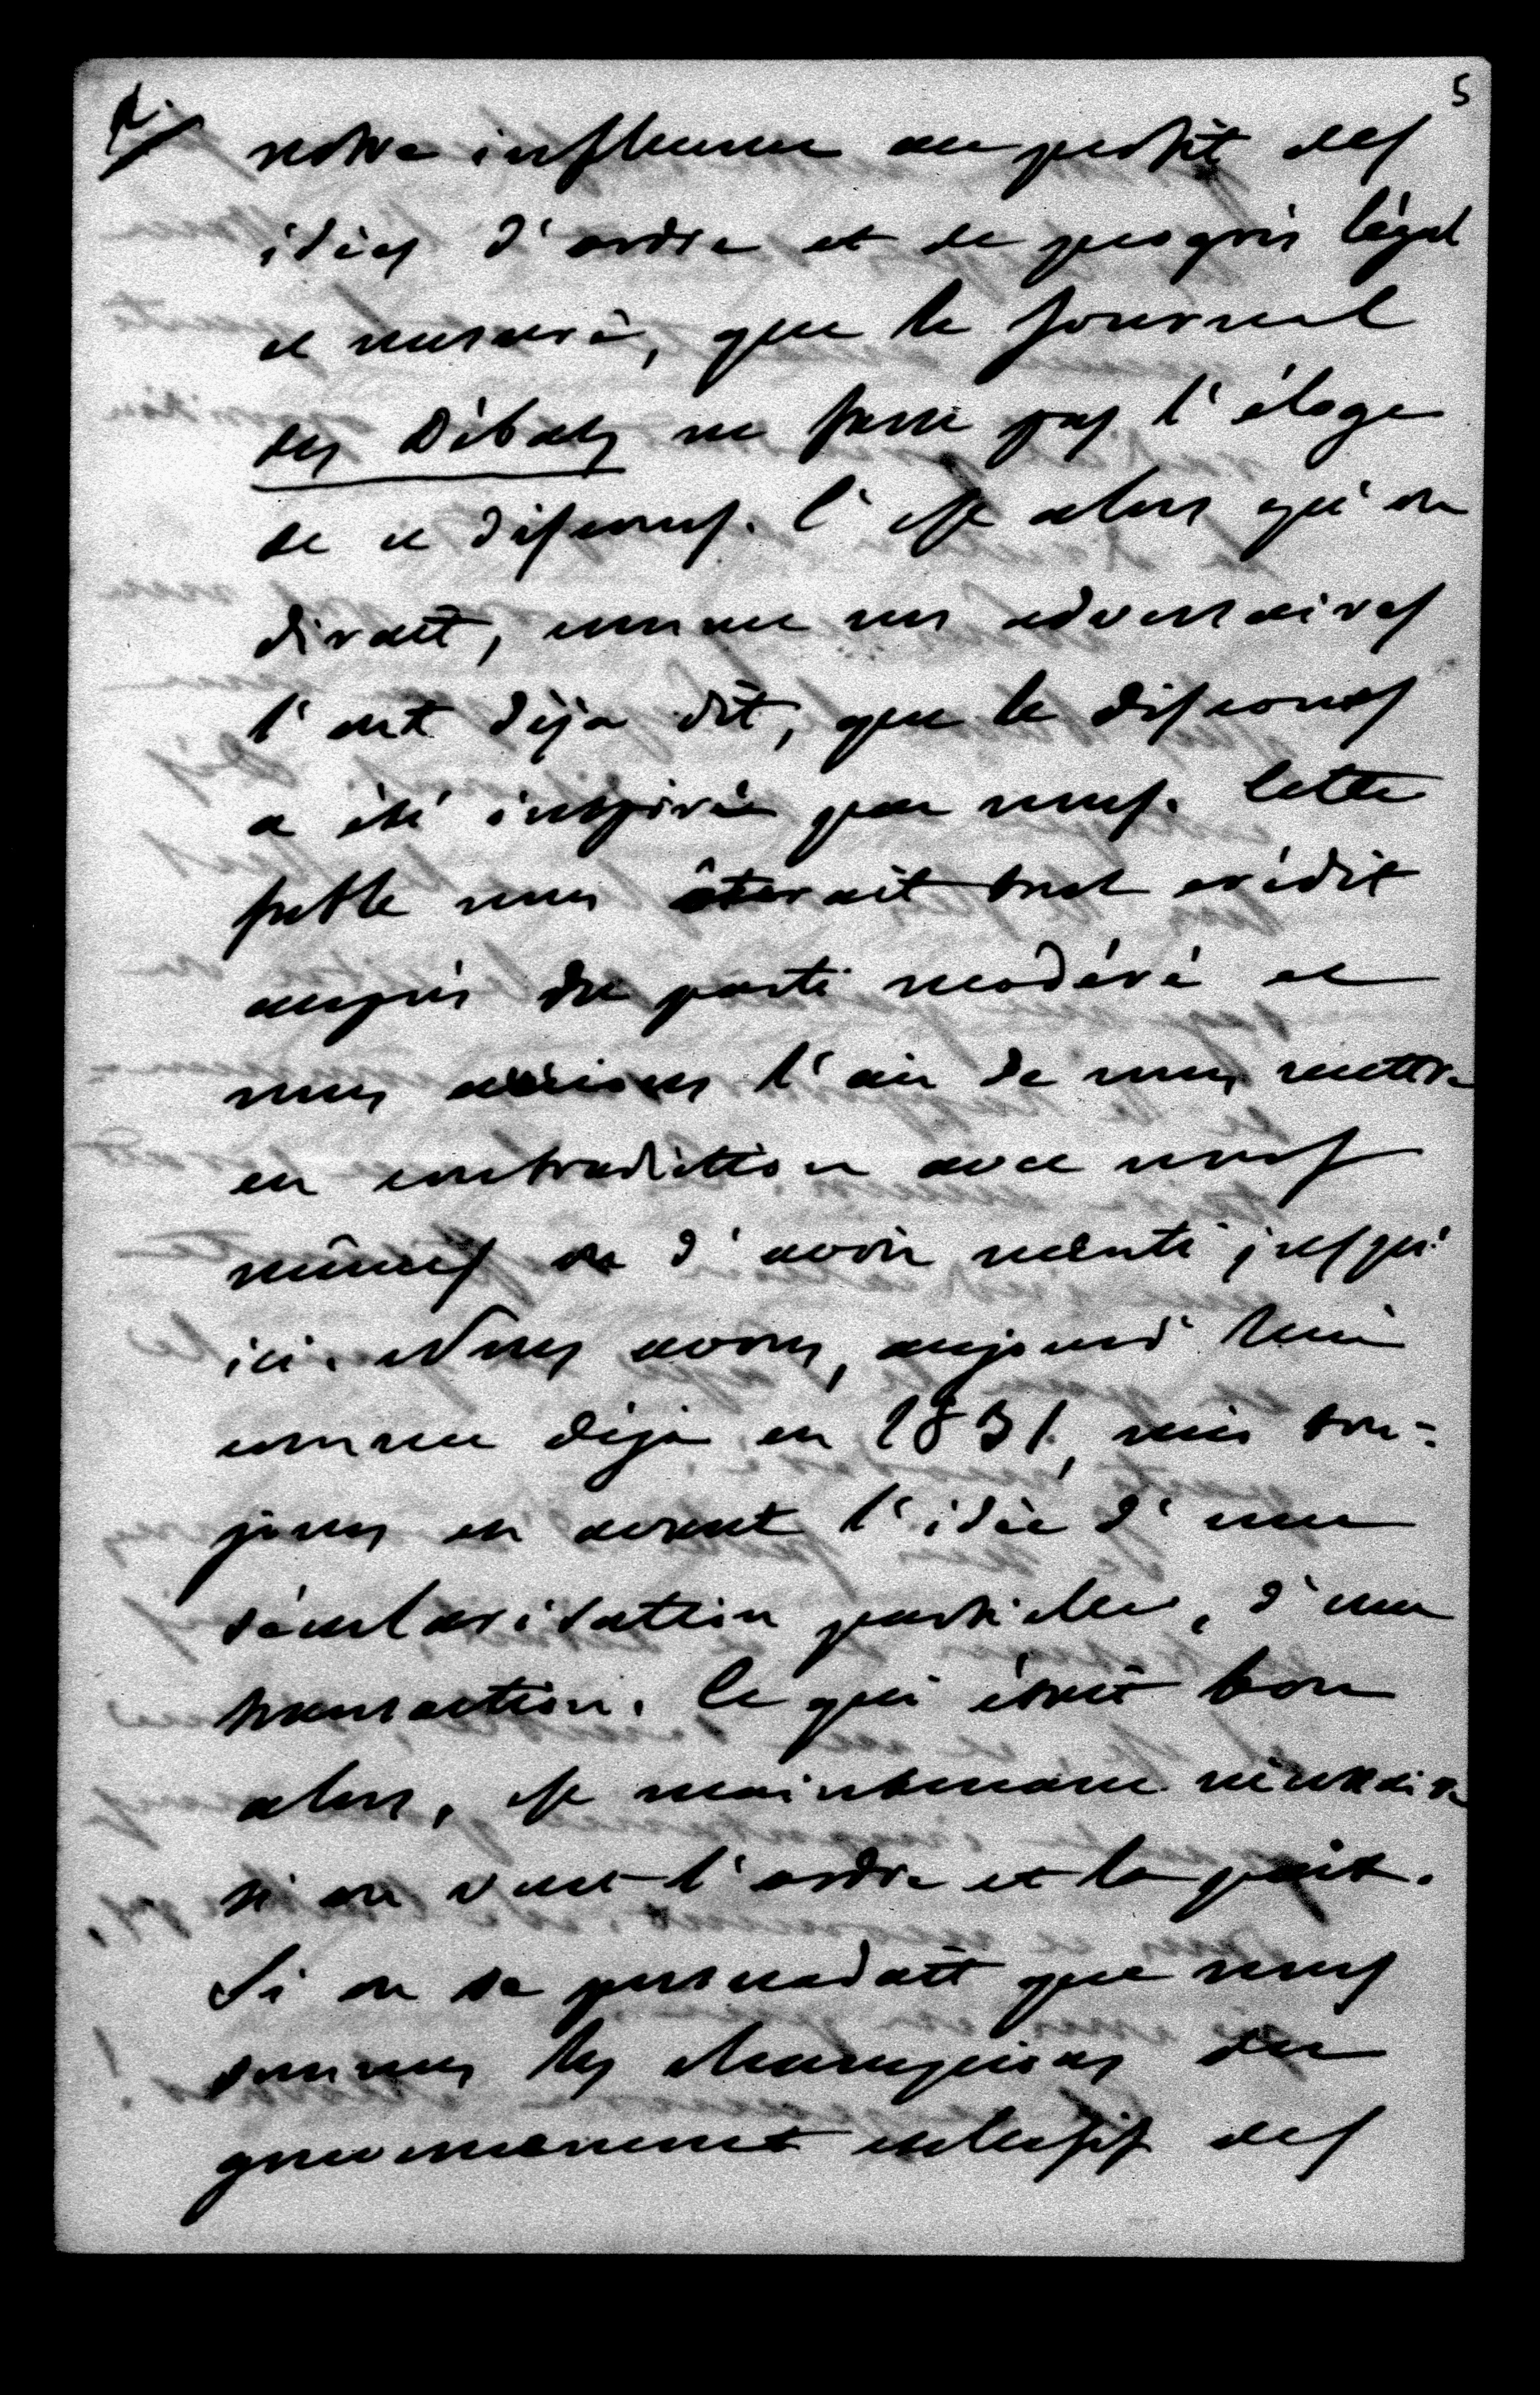 5
notre influence au profit des
idées d'ordre et de progrès légal
et mesuré, que le Journal
des Débats ne fasse pas l'éloge
de ce discours. C'est alors qu'on
dirait, comme nos adversaires
l'ont déja dit, que le discours
a été inspiré par nous. Cette
fable nous ôterait tout crédit
auprès du parti modéré et
nous aurions l'air de nous mettre
en contradiction avec nous
mêmes ou d'avoir menti jusqu'
ici. Nous avons, aujourd'hui
comme déjà en 1831, mis tou=
jours en avant l'idée d'une
sécularisation partielle, d'une
transaction. Ce qui était bon
alors, est maintenant nécessaire
si on veut l'ordre et la paix.
Si on se persuadait que nous
sommes les champions du
gouvernement exclusif des